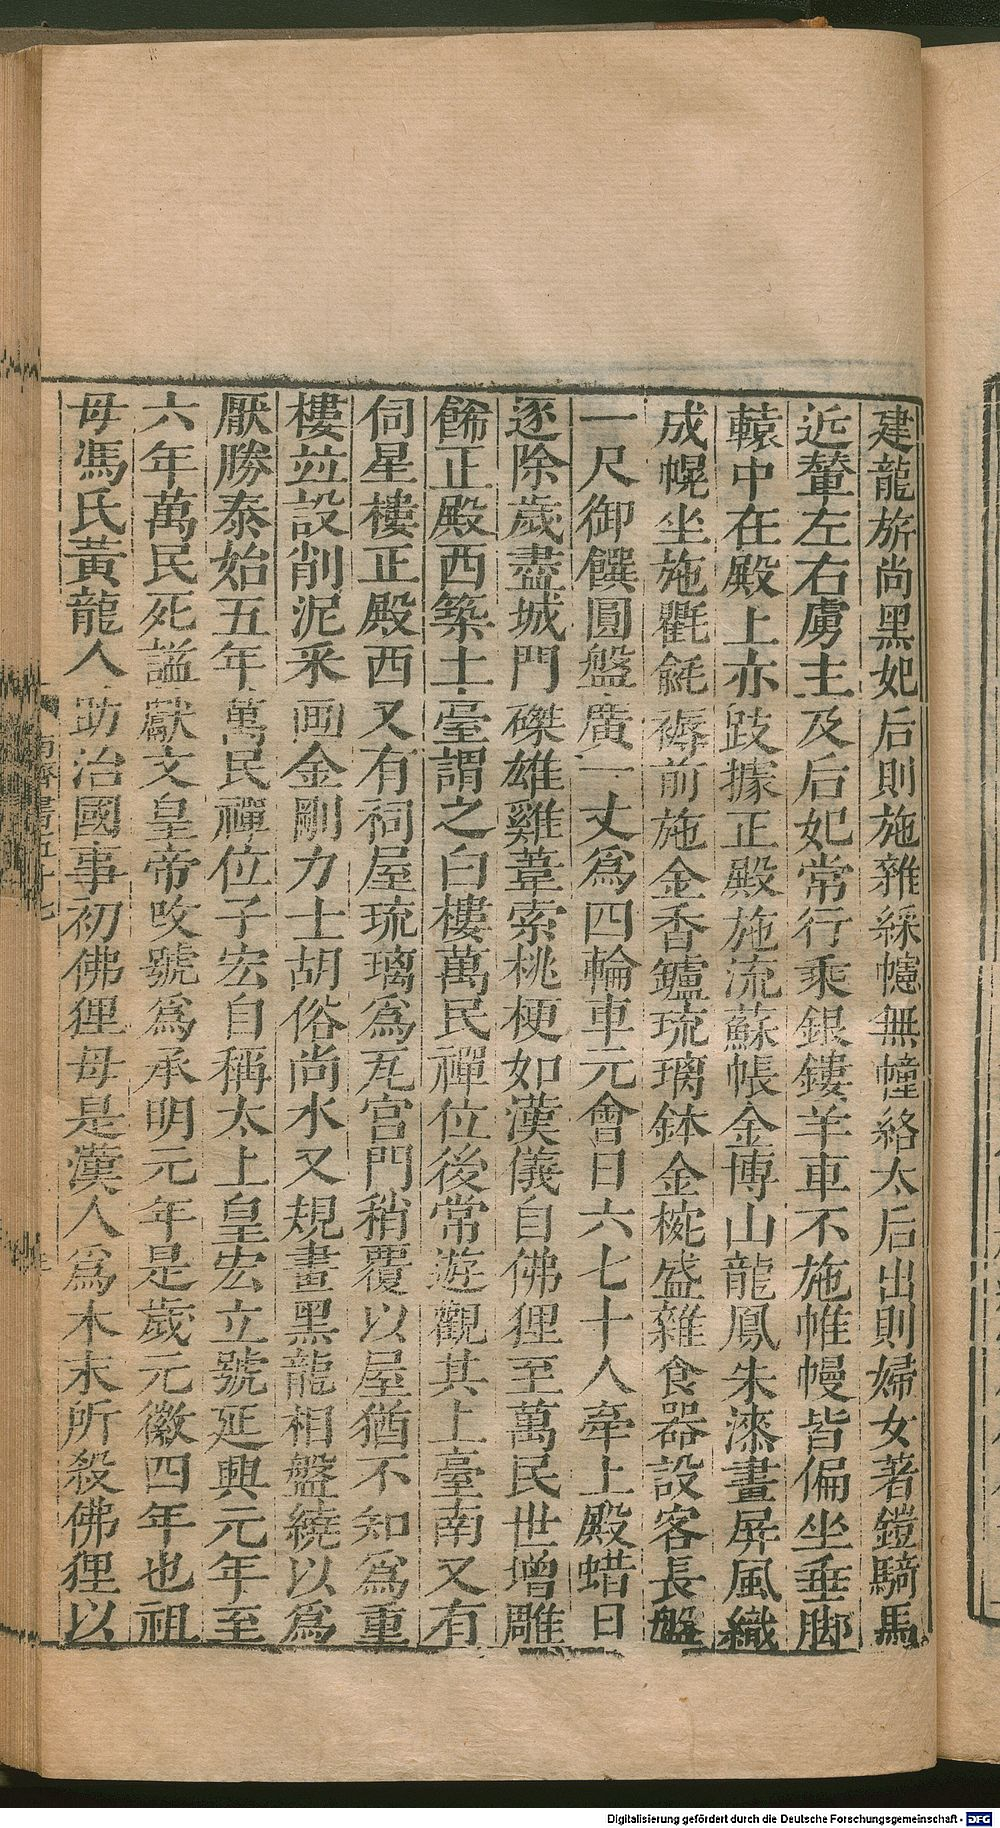 建龍旂尚黑妃后則施雜綵幰無幢絡太后出則婦女著鎧騎馬
近輦左右虜主及后妃常行乘銀鏤羊車不施帷幔皆偏坐垂脚
轅中在殿上亦跂據正殿施流蘇帳金博山龍鳳朱漆畫屏風織
成幌坐施氍毹褥前施金香鑪琉璃鉢金椀盛雜食器設客長盤
一尺御饌圓盤廣一丈爲四輪車元會日六七十人牽上殿蜡日
逐除歲盡城門磔雄雞葦索桃梗如漢儀自佛狸至萬民世增雕
餙正殿西築土臺謂之白樓萬民禪位後常遊觀其上臺南又有
伺星樓正殿西又有祠屋琉璃爲瓦宫門稍覆以屋猶不知爲重
樓竝設削泥采画金剛力士胡俗尚水又規畫黑龍相盤繞以爲
厭勝泰始五年萬民禪位子宏自稱太上皇宏立號延興元年至
六年萬民死謚獻文皇帝攺號爲承明元年是歲元徽四年也祖
母馮氏黃龍人助治國事初佛狸母是漢人爲木末所殺佛狸以
南齊書五十七
Digitalisierung gefördert durch die Deutsche Forschungsgemeinschaft - DFG